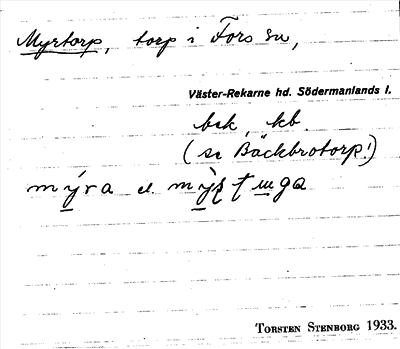 Myrtorp, torp i Fors sn,
Väster-Rekarne hd. Södermanlands l.
bek, kb.
(se Bäckbrotorp!)
mýra el.
TORSTEN STENBORG 1933.